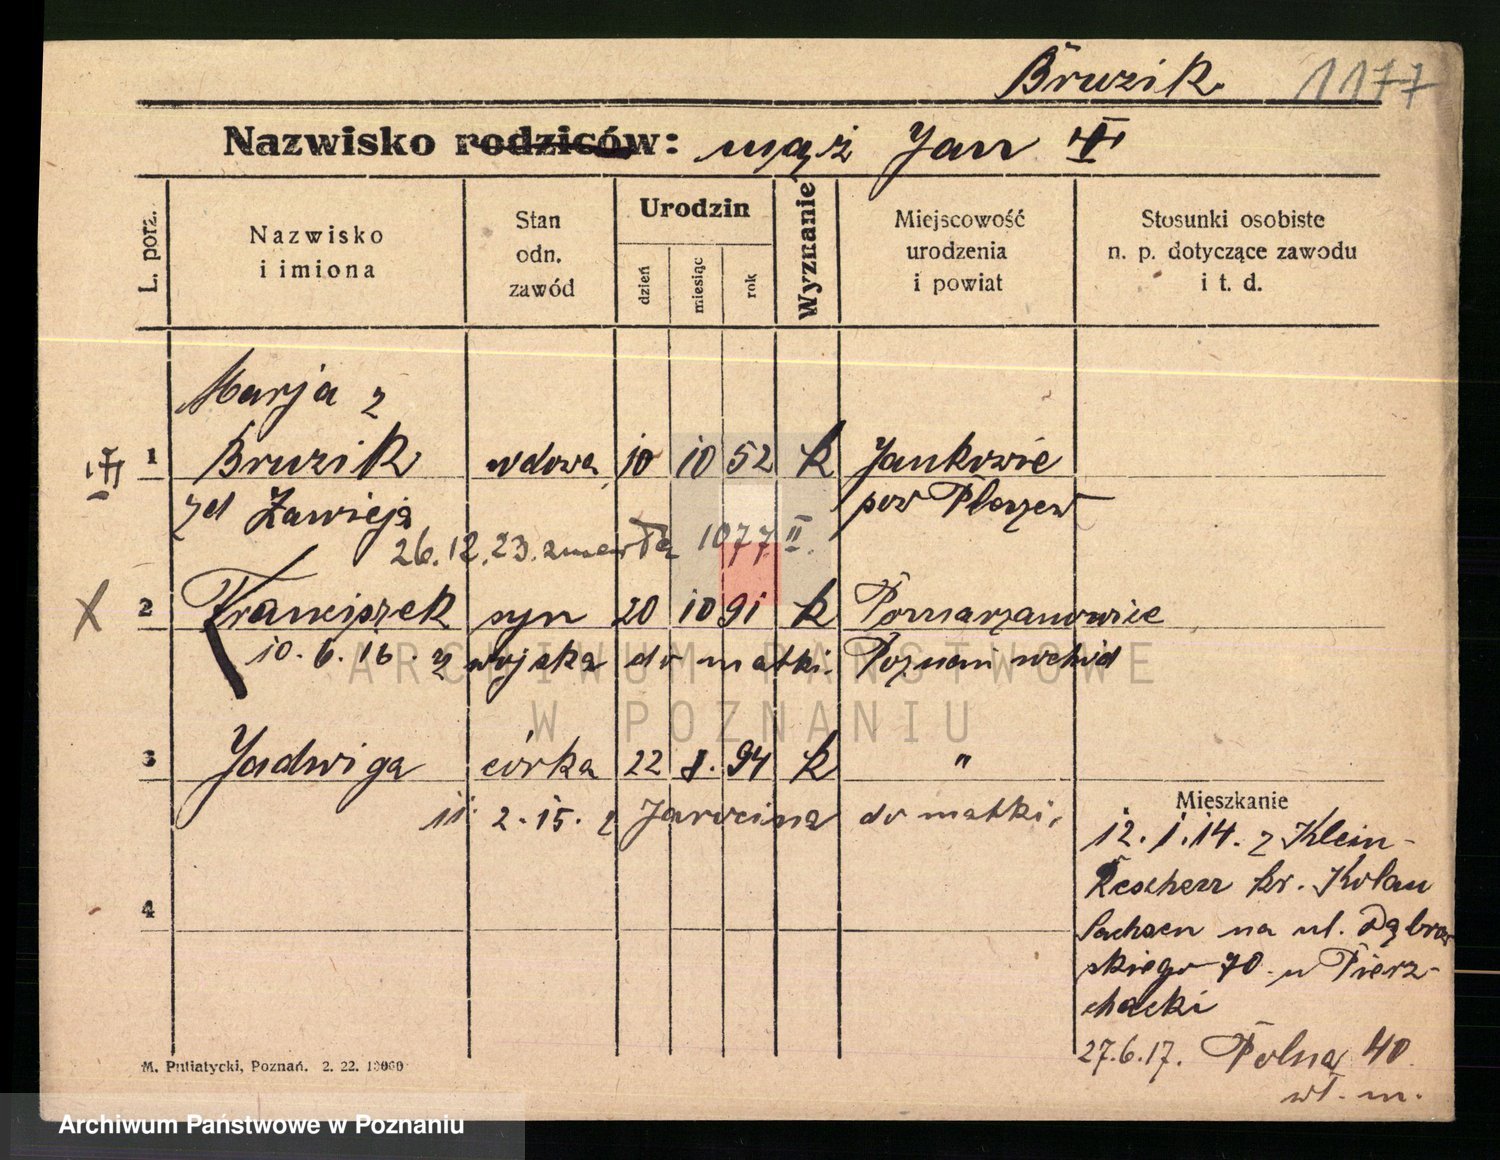 Bruzik 1177
Nazwisko rodziców: mąż Jan
L. porz.
Nazwisko i imiona
Stan odn. zawód
Urodzin
dzień
miesiąc
rok
Wyznanie
Miejscowość urodzenia i powiat
Stosunki osobiste n. p. dotyczące zawodu i t. d.
Marja z
1 Bruzik wdowa 10 10 52 k Jankowie
zd Zawieja pow Pleszew
26.12.23. zmarła 1077 II.
X 2 Franciszek syn 20 10 91 k Pomarzanowice
10.6.16. z wojska do matki. Poznań wschód
3 Jadwiga córka 22 8. 94 k "
11. 2.15. z Jarocina do matki.
4
Mieszkanie
12.1.14. z Klein-
kr.
Sachsen na ul. Dąbrow
skiego 70 u Pierz-
chacki
27.6.17. Polna 40
wł. m.
M. Putiatycki, Poznań. 2. 22. 10000
ARCHIWUM PAŃSTWOWE
W POZNANIU
Archiwum Państwowe w Poznaniu